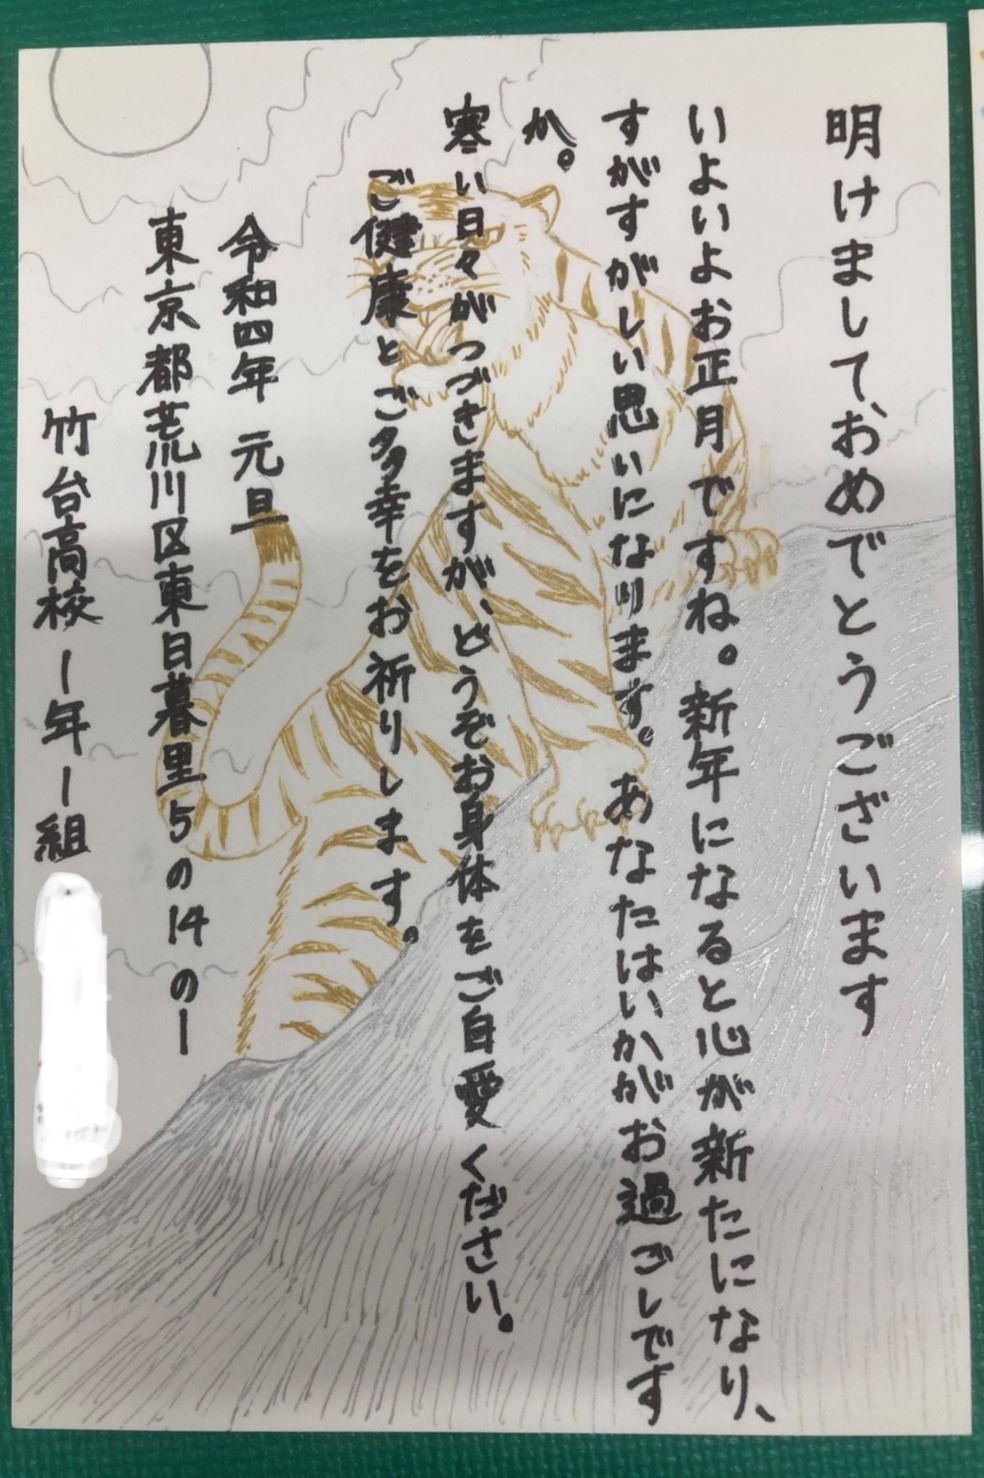 明けまして、おめでとうございます
いよいよお正月ですね。新年になると心が新たになり、
すがすがしい思いになります。あなたはいかがお過ごしです
か。
寒い日々がつづきますが、どうぞお身体をご自愛ください。
ご健康とご多幸をお祈りします。
令和四年 元旦
東京都荒川区東日暮里5の14の一
竹台高校 一年一組